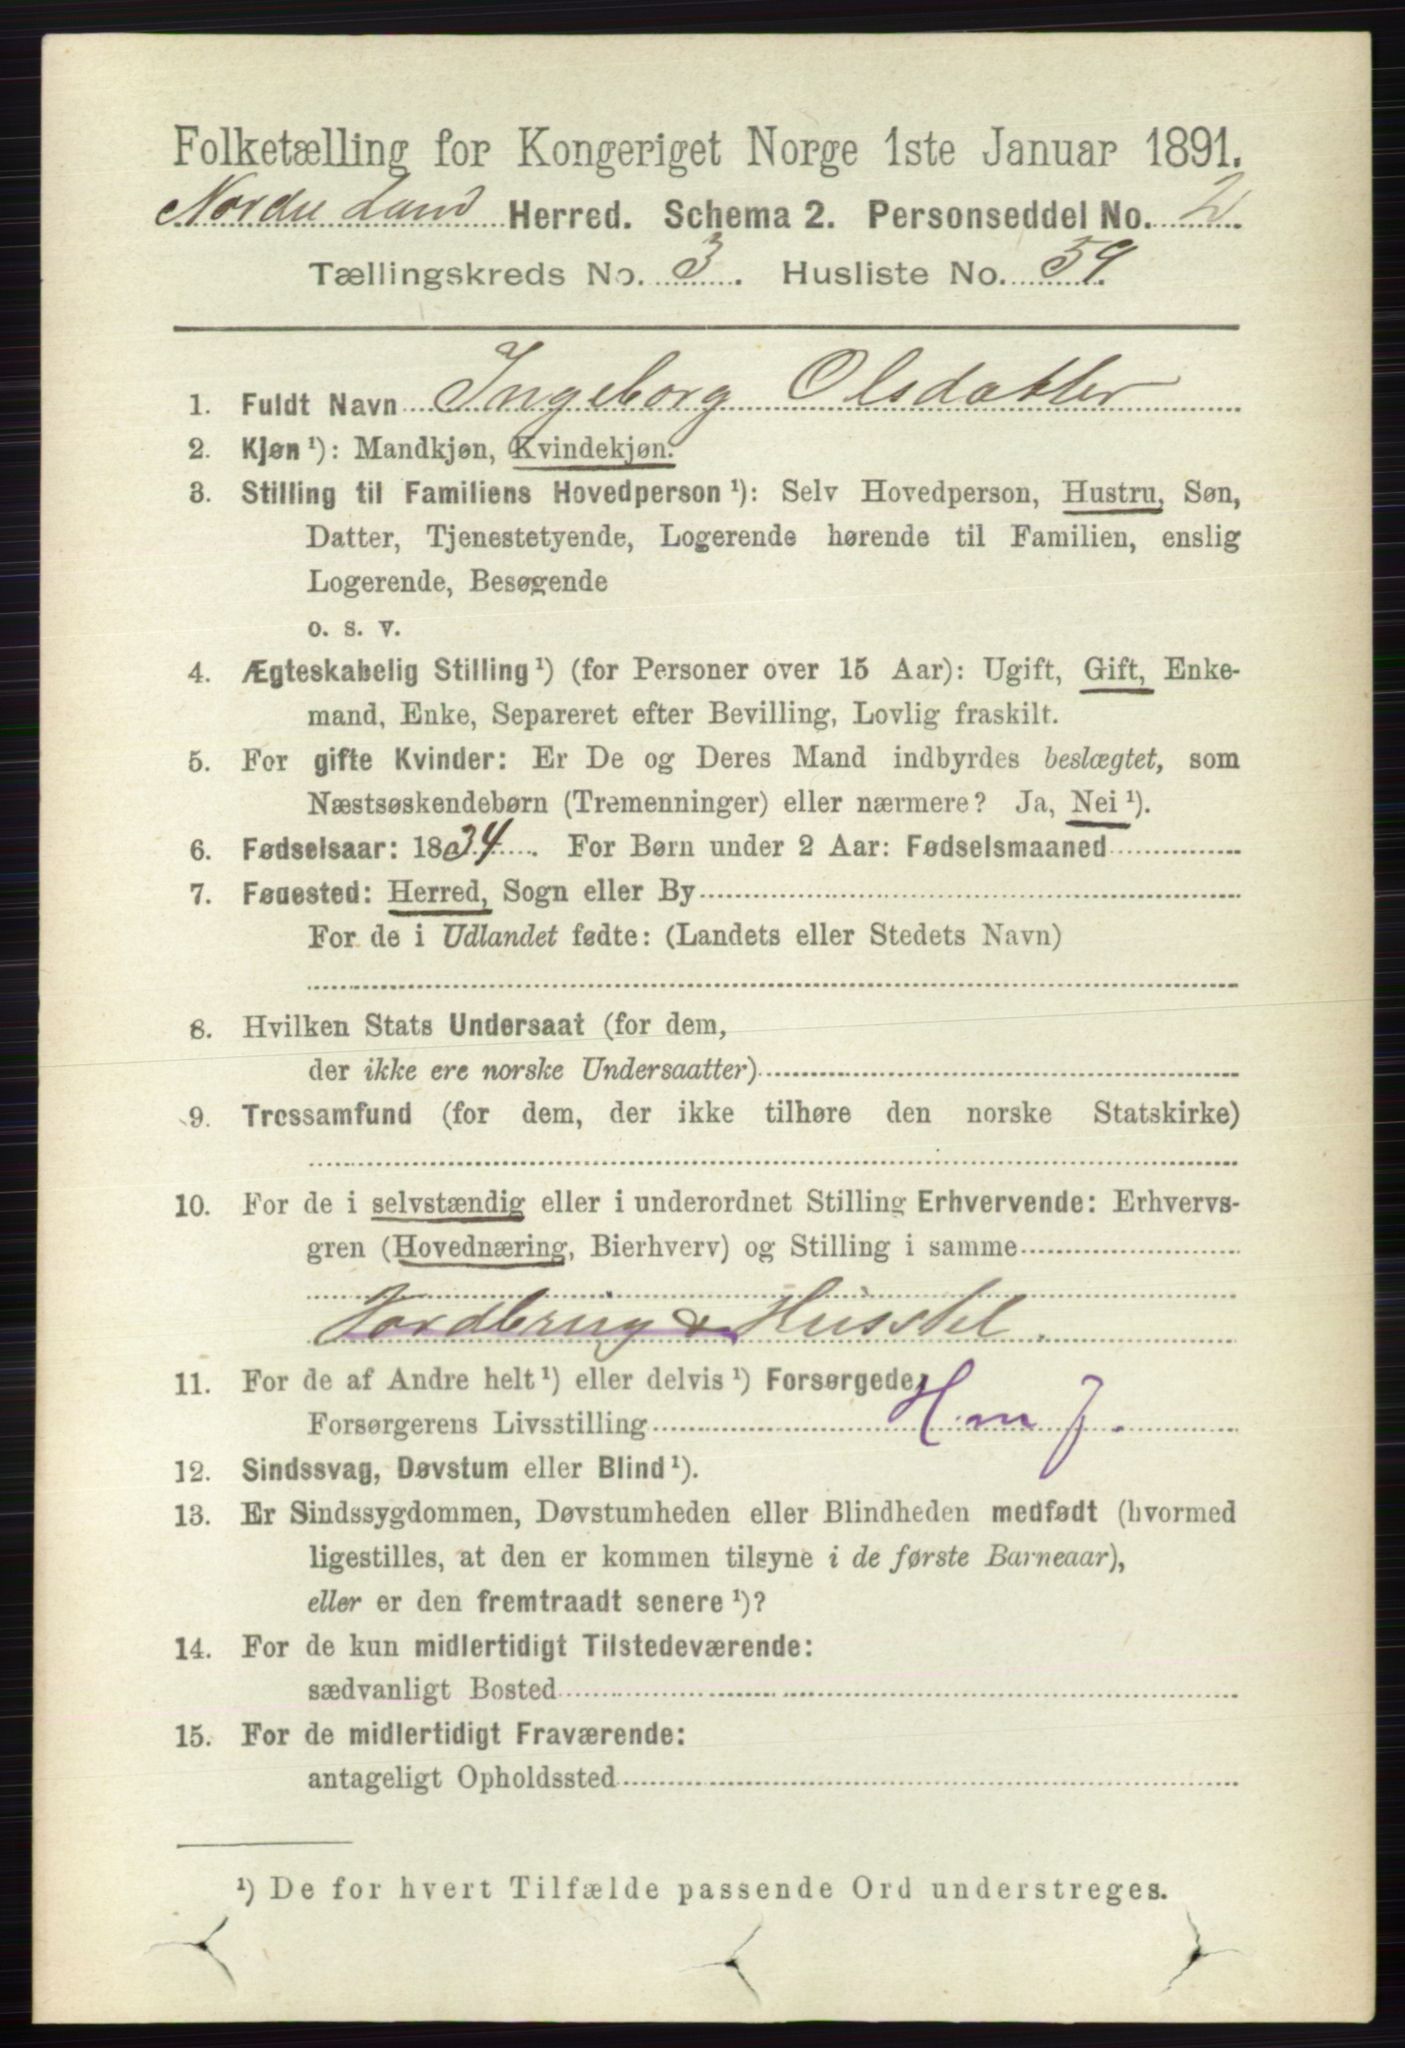 Folketælling for Kongeriget Norge 1ste Januar 1891.
Nordre Land Herred. Schema 2. Personseddel No. 2.
Tællingskreds No. 3. Husliste No. 59.
1. Fuldt Navn Ingeborg Olsdatter
2. Kjøn ¹): Mandkjøn, Kvindekjøn.
3. Stilling til Familiens Hovedperson ¹): Selv Hovedperson, Hustru, Søn,
Datter, Tjenestetyende, Logerende hørende til Familien, enslig
Logerende, Besøgende
o. s. v.
4. Ægteskabelig Stilling ¹) (for Personer over 15 Aar): Ugift, Gift, Enke-
mand, Enke, Separeret efter Bevilling, Lovlig fraskilt.
5. For gifte Kvinder: Er De og Deres Mand indbyrdes beslægtet, som
Næstsøskendebørn (Tremenninger) eller nærmere? Ja, Nei ¹).
6. Fødselsaar: 1834. For Børn under 2 Aar: Fødselsmaaned
7. Fødested: Herred, Sogn eller By
For de i Udlandet fødte: (Landets eller Stedets Navn)
8. Hvilken Stats Undersaat (for dem,
der ikke ere norske Undersaatter)
9. Trossamfund (for dem, der ikke tilhøre den norske Statskirke)
10. For de i selvstændig eller i underordnet Stilling Erhvervende: Erhvervs-
gren (Hovednæring, Bierhverv) og Stilling i samme
Jordbrug & Husstel.
11. For de af Andre helt ¹) eller delvis ¹) Forsørgede,
Forsørgerens Livsstilling H. m J.
12. Sindssvag, Døvstum eller Blind ¹).
13. Er Sindssygdommen, Døvstumheden eller Blindheden medfødt (hvormed
ligestilles, at den er kommen tilsyne i de første Barneaar),
eller er den fremtraadt senere ¹)?
14. For de kun midlertidigt Tilstedeværende:
sædvanligt Bosted
15. For de midlertidigt Fraværende:
antageligt Opholdssted
¹) De for hvert Tilfælde passende Ord understreges.